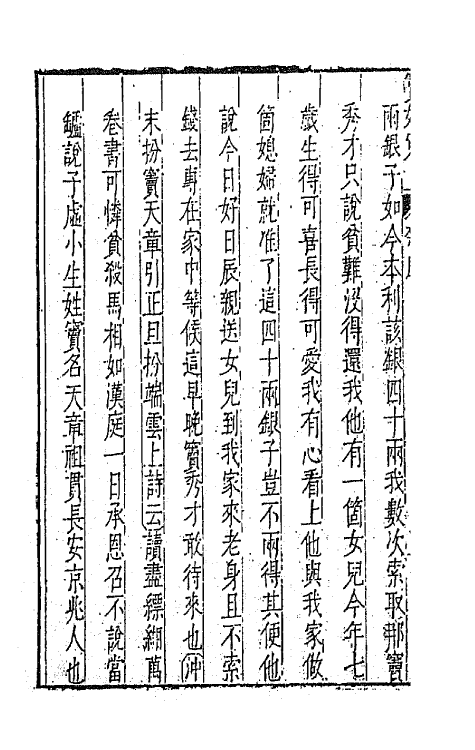 兩銀子如今本利該銀四十兩我數次索取那竇
秀才只說貧難沒得還我他有一箇女兒今年七
歲生得可喜長得可愛我有心看上他與我家做
箇媳婦就准了這四十兩銀子豈不兩得其便他
說今日好日辰親送女兒到我家來老身且不索
錢去專在家中等候這早晚竇秀才敢待來也冲
末扮竇天章引正旦扮端雲上詩云讀盡縹緗萬
卷書可憐貧殺馬相如漢庭一日承恩召不說當
鑪說子虛小生姓竇名天章祖貫長安京兆人也